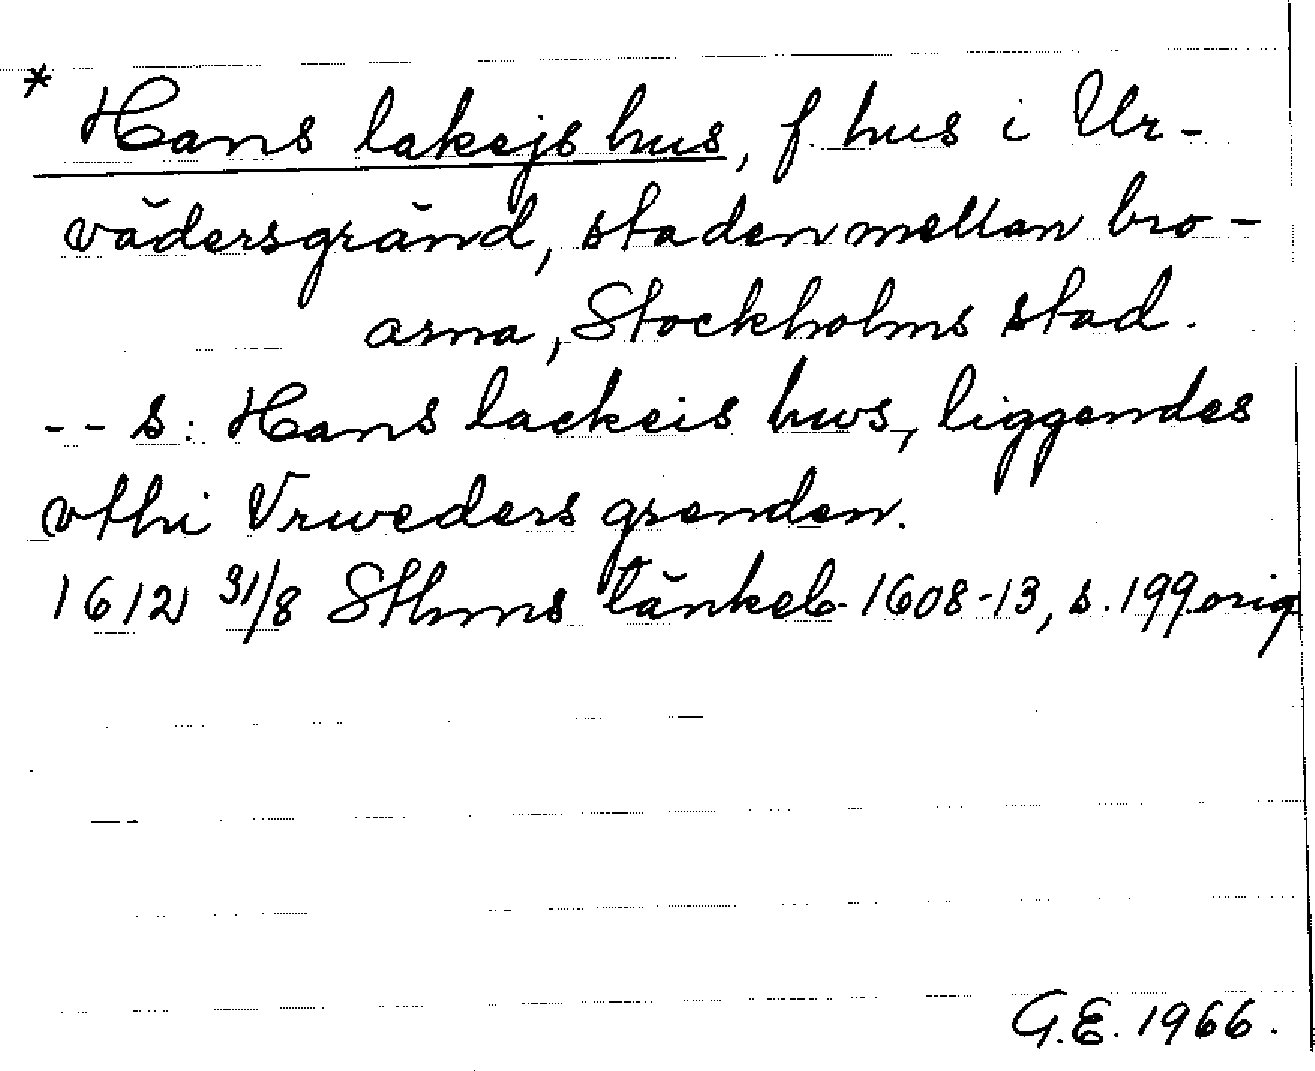 * Hans lakejs hus, f. hus i Ur-
vädersgränd, staden mellan bro-
arna, Stockholms stad.
-- s: Hans lackeis hws, liggendes
vthi Vrweders grenden.
1612 31/8 Sthms tänkeb. 1608-13, s. 199 orig
G.E. 1966.